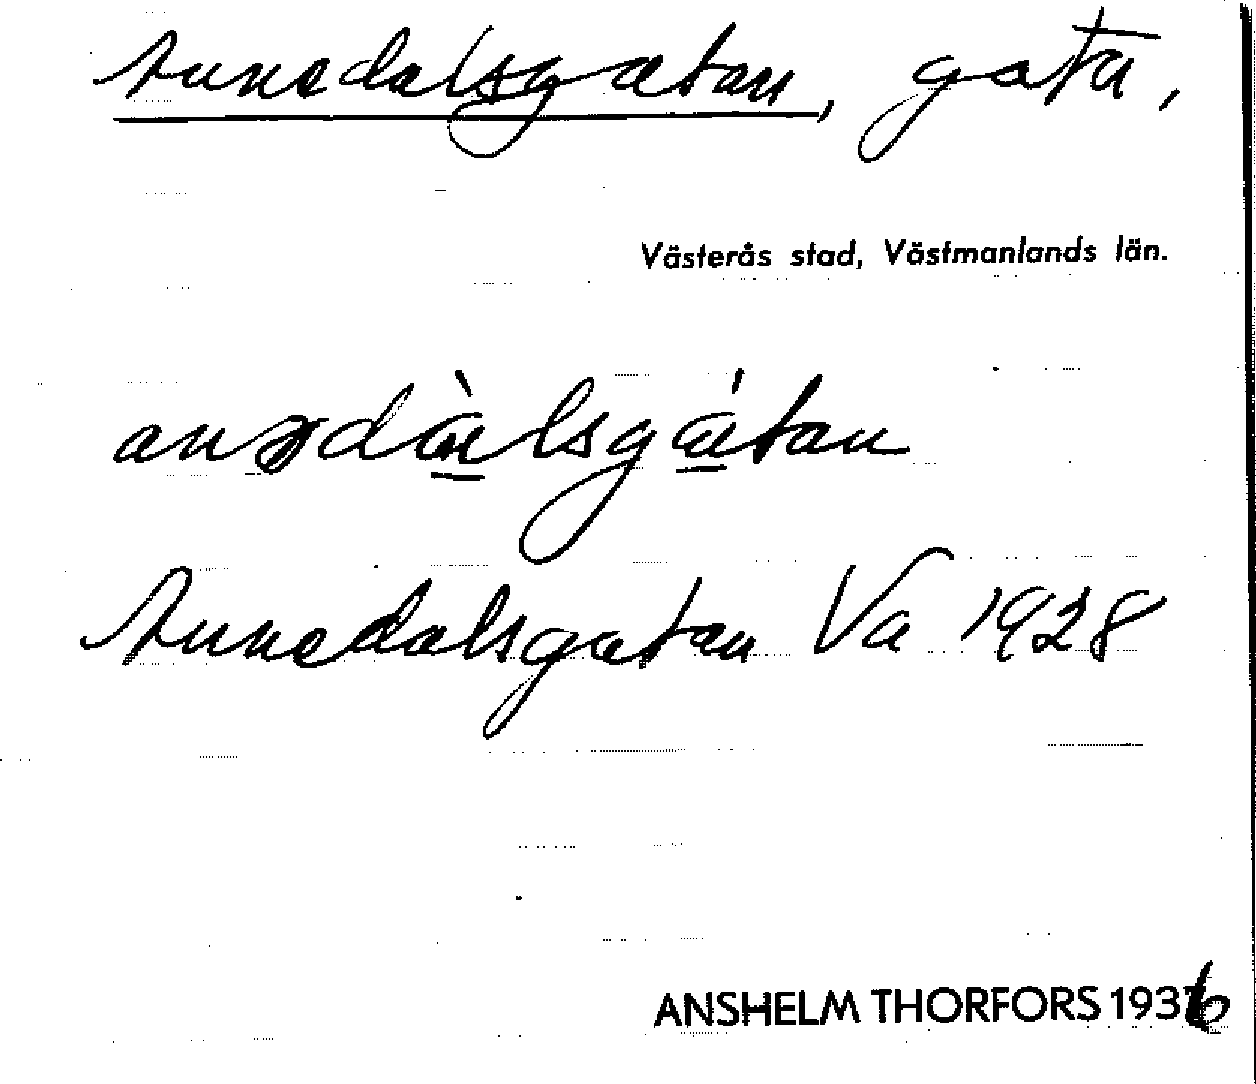 Annedalsgatan, gata,
Västerås stad, Västmanlands län.
anədàlsgátan
Annedalsgatan Va 1928
ANSHELM THORFORS 1936